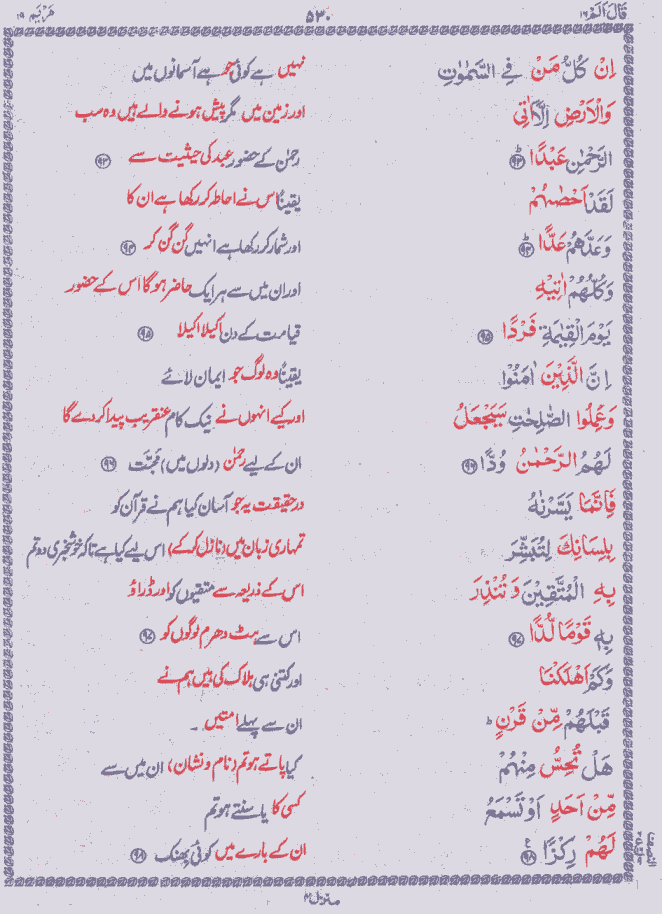 قَالَ اَلَمْ ۱۶ ۵۳۰ مَرْيَم ۱۹
اِنْ كُلُّ مَنْ فِي السَّمٰوٰتِ نہیں ہے کوئی جو ہے آسمانوں میں
وَالْاَرْضِ اِلَّاۤ اٰتِي اور زمین میں مگر پیش ہونے والے ہیں وہ سب
الرَّحْمٰنِ عَبْدًا ؕ ۹۳ رحمٰن کے حضور عبد کی حیثیت سے ۹۳
لَقَدْ اَحْصٰىهُمْ یقیناً اس نے احاطہ کر رکھا ہے ان کا
وَعَدَّهُمْ عَدًّا ؕ ۹۴ اور شمار کر رکھا ہے انہیں گن گن کر ۹۴
وَكُلُّهُمْ اٰتِيْهِ اور ان میں سے ہر ایک حاضر ہوگا اس کے حضور
يَوْمَ الْقِيٰمَةِ فَرْدًا ۹۵ قیامت کے دن اکیلا اکیلا ۹۵
اِنَّ الَّذِيْنَ اٰمَنُوْا یقیناً وہ لوگ جو ایمان لائے
وَعَمِلُوا الصّٰلِحٰتِ سَيَجْعَلُ اور کیے انہوں نے نیک کام عنقریب پیدا کردے گا
لَهُمُ الرَّحْمٰنُ وُدًّا ۹۶ ان کے لیے رحمٰن (دلوں میں) محبّت ۹۶
فَاِنَّمَا يَسَّرْنٰهُ درحقیقت یہ جو آسان کیا ہم نے قرآن کو
بِلِسَانِكَ لِتُبَشِّرَ تمہاری زبان میں (نازل کرکے) اس لیے کیا ہے تاکہ خوشخبری دو تم
بِهِ الْمُتَّقِيْنَ وَتُنْذِرَ اس کے ذریعہ سے متقیوں کو اور ڈراؤ
بِهٖ قَوْمًا لُّدًّا ۹۷ اس سے ہٹ دھرم لوگوں کو ۹۷
وَكَمْ اَهْلَكْنَا اور کتنی ہی ہلاک کی ہیں ہم نے
قَبْلَهُمْ مِّنْ قَرْنٍ ؕ ان سے پہلے امتیں ۔
هَلْ تُحِسُّ مِنْهُمْ کیا پاتے ہو تم (نام و نشان) ان میں سے
مِّنْ اَحَدٍ اَوْ تَسْمَعُ کسی کا یا سنتے ہو تم
لَهُمْ رِكْزًا ۹۸ ان کے بارے میں کوئی بھنک ۹۸
منزل ۴